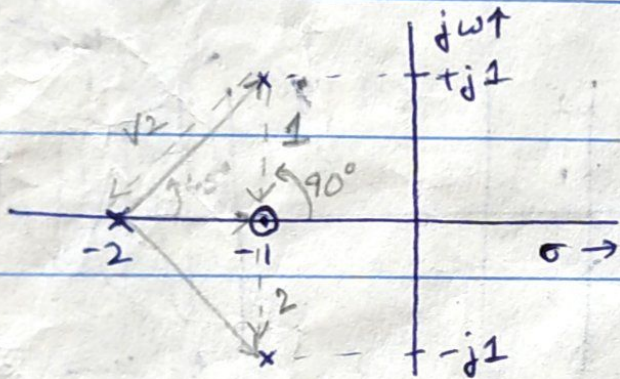 jω↑
+j1
√2
1
45°
90°
-2
-1
σ →
2
-j1